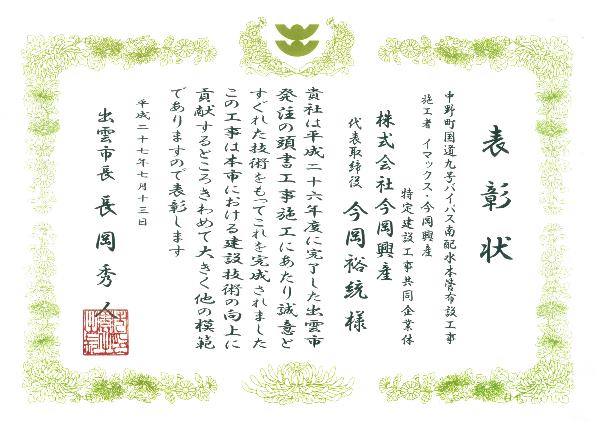 表彰状
中野町国道九号バイパス南配水本管布設工事
施工者 イマックス・今岡興産
特定建設工事共同企業体
株式会社今岡興産
代表取締役 今岡裕統様
貴社は平成二十六年度に完了した出雲市
発注の頭書工事施工にあたり誠意と
すぐれた技術をもってこれを完成されました
この工事は本市における建設技術の向上に
貢献するところきわめて大きく他の模範
でありますので表彰します
平成二十七年七月十三日
出雲市長 長岡秀人